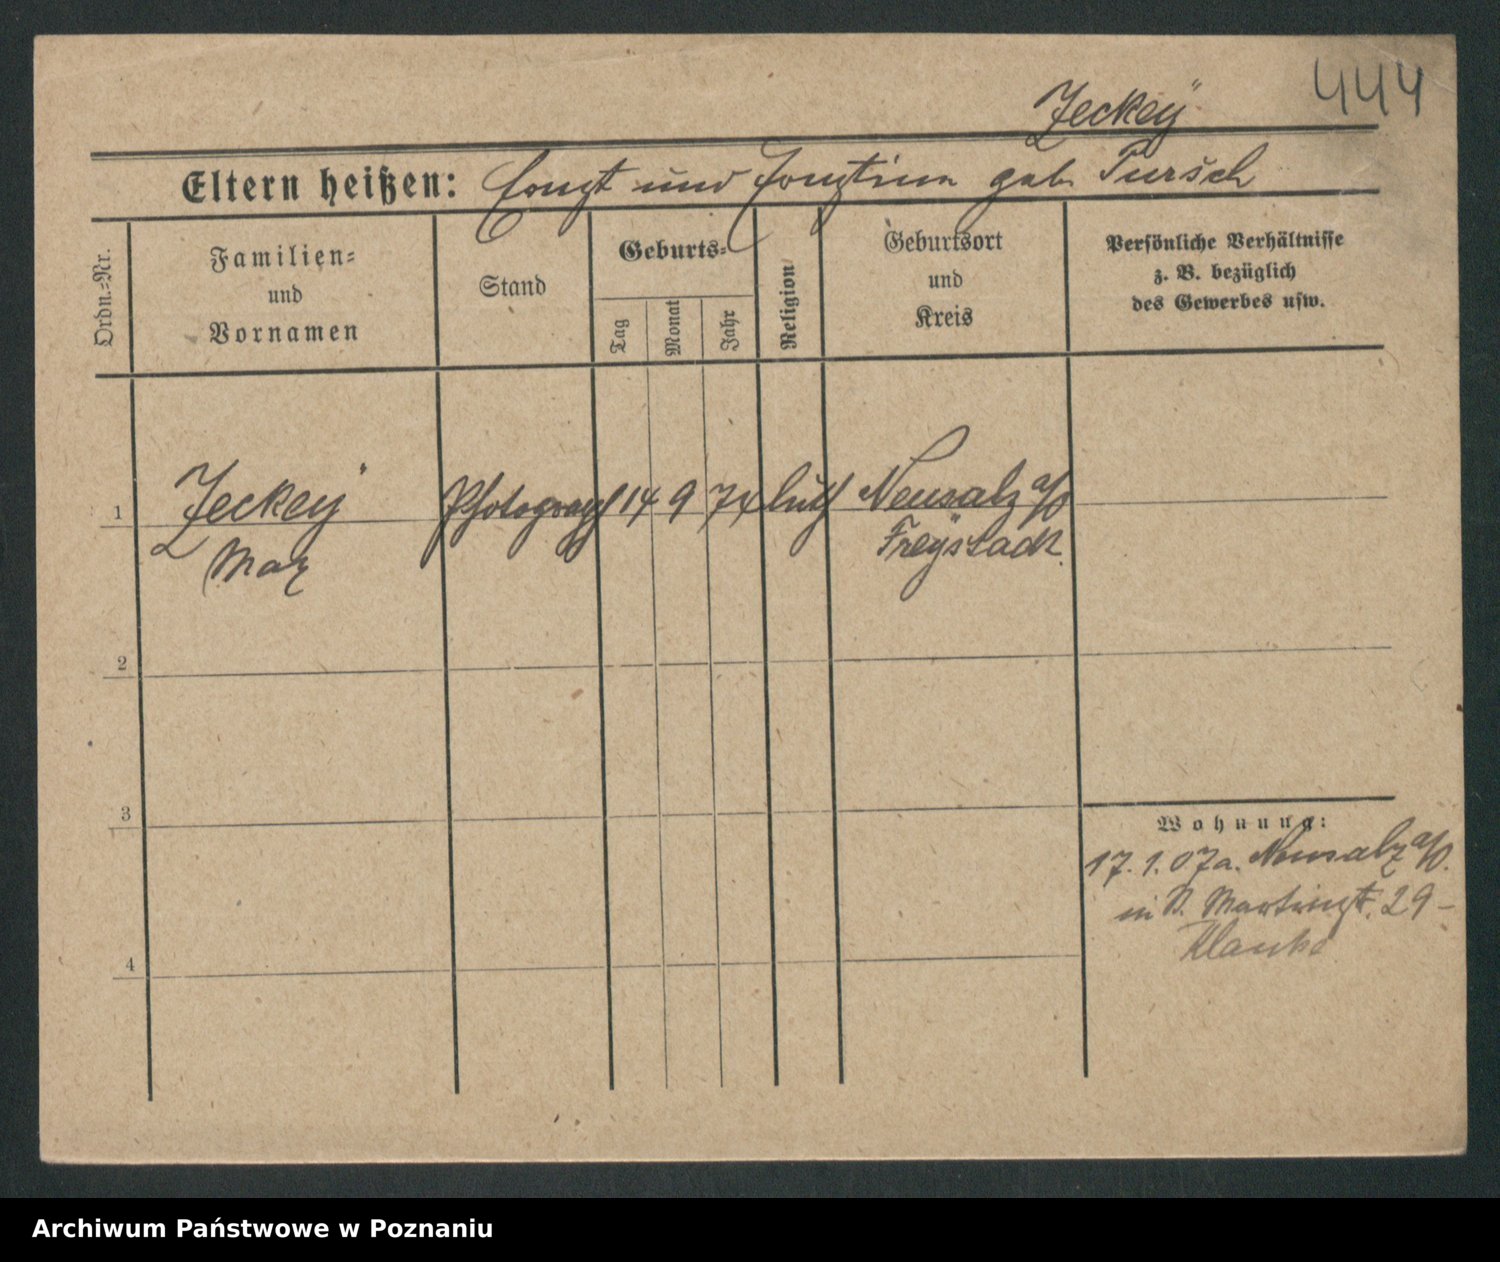 444
Jeckeÿ
Eltern heißen: Ernst und Ernstine geb. Pursch
Ordn.-Nr.
Familien-
und
Vornamen
Stand
Geburts-
Tag
Monat
Jahr
Religion
Geburtsort
und
Kreis
Persönliche Verhältnisse
z. B. bezüglich
des Gewerbes usw.
1
Jeckeÿ
Max
Photograph
14
9
74
luth
Neusalz a/O
Freÿstadt
2
3
4
Wohnung:
17. 1. 07 a. Neusalz a/O.
in St. Martinst. 29 –